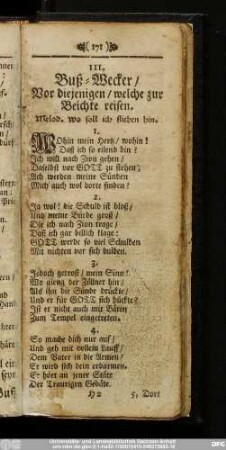 (171)
III.
Buß-Wecker/
Vor diejenigen/ welche zur
Beichte reisen.
Melod. Wo soll ich fliehen hin.
1.
WOhin mein Hertz/ wohin!
Daß ich so eilend bin?
Ich will nach Zion gehen/
Daselbst vor GOTT zu stehen:
Ach werden meine Sünden
Mich auch wol dorte finden!
2.
Ja wol! die Schuld ist bloß/
Und meine Bürde groß/
Die ich nach Zion trage/
Daß ich gar billich klage:
GOTT werde so viel Schulden
Mit nichten vor sich dulden.
3.
Jedoch getrost/ mein Sinn!
Wo gieng der Zöllner hin/
Als ihn die Sünde drückte/
Und er für GOTT sich bückte?
Ist er nicht auch mit Bürden
Zum Tempel eingetreten.
4.
So mache dich nur auf/
Und geh mit vollem Lauff/
Dem Vater in die Armen/
Er wird sich dein erbarmen.
Er hört an jener Stäte
Der Traurigen Gebäte.
H2
5. Dort